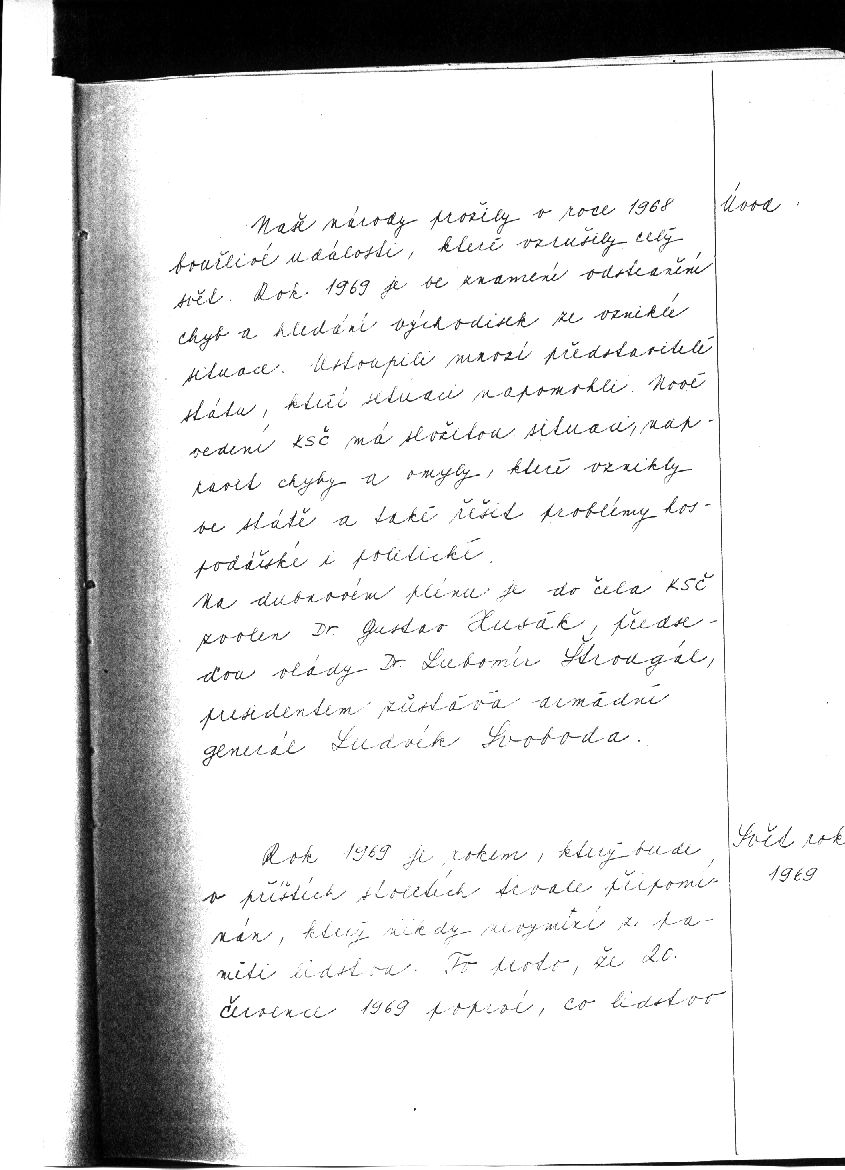 Naše národy prožily v roce 1968
Úvod.
bouřlivé události, které vzrušily celý
svět. Rok 1969 je ve znamení odstranění
chyb a hledání východisek ze vzniklé
situace. Ustoupili mnozí představitelé
státu, kteří situaci napomohli. Nové
vedení KSČ má složitou situaci, nap-
ravit chyby a omyly, které vznikly
ve státě a také řešit problémy hos-
podářské i politické.
Na dubnovém plénu je do čela KSČ
zvolen Dr. Gustav Husák, předse-
dou vlády Dr. Lubomír Štrougál,
presidentem zůstává armádní
generál Ludvík Svoboda.
Rok 1969 je rokem, který bude
Svět rok
1969
v příštích stoletích trvale připomí-
nán, který nikdy nevymizí z pa-
měti lidstva. To proto, že 20.
července 1969 poprvé, co lidstvo